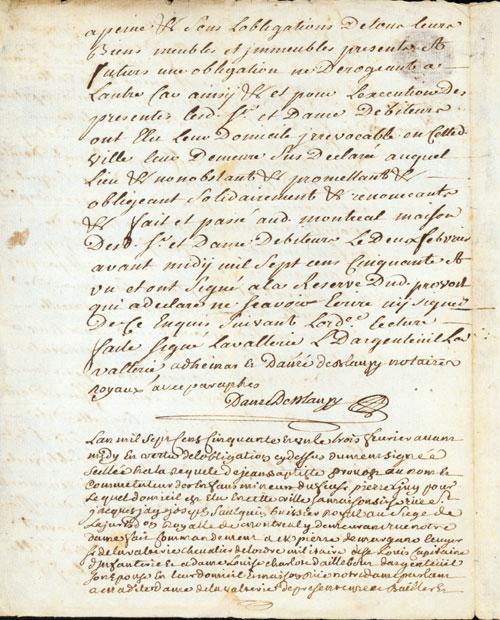 apeine &c Sous Lobligations De tous leurs
Biens meubles et immeubles presents Et
futurs une obligation ne Derogeante a
Lautre Car ainsij &c et pour Lexecution des
presentes Lesd. Sr. et Dame Debiteurs
ont Elu Leur Domicile jrrevocable en Cette d.
ville Leur Demeure Sus Declaré auquel
Lieu &c nonobstant &c promettant &c
obligeant Solidairement &c renoncants
&c fait et passé aud. montreal maison
Desd. Sr. et Dame Debiteurs Le Deux febvrier
avant midij mil Sept cens Cinquante Et
vn et ont Signé a La Reserve Dud. prevost
qui a declaré ne Scavoir Ecrire nij Signer
De Ce Enquis Suivant Lordce. Lecture
faite Signé Lavallerie Le. Dargenteuil La
vallerie adhemar & Danré de Blanzy notaires
royaux avec paraphes
Danré De Blanzy
Lan mil Sept Cens Cinquante en vn le trois fevrier auant
midy En vertu de lobligation cy dessus dument signé e
Scellée & a la requete de jean baptiste prevost au nom &
Comme tuteur des Enfans mineur du
Lequel domicil est Elu En cette ville Sa maison Sise rüe St
jacques jay joseph huissier Royal au Siege de
La jurisd.on Royalle de montreal y demeurant rue notre
dame fait Commandement a pierre de margane Ecuyer
Sr de lavalterie Chevalier de lordre militaire de St Louis Capitaine
dinfanterie & a dame Louise Charlote daillebout dargenteuil
Son Epouse En leur domicil & maison Rüe notre dame parlant
a ladite dame de lavalterie de presentement Bailler &